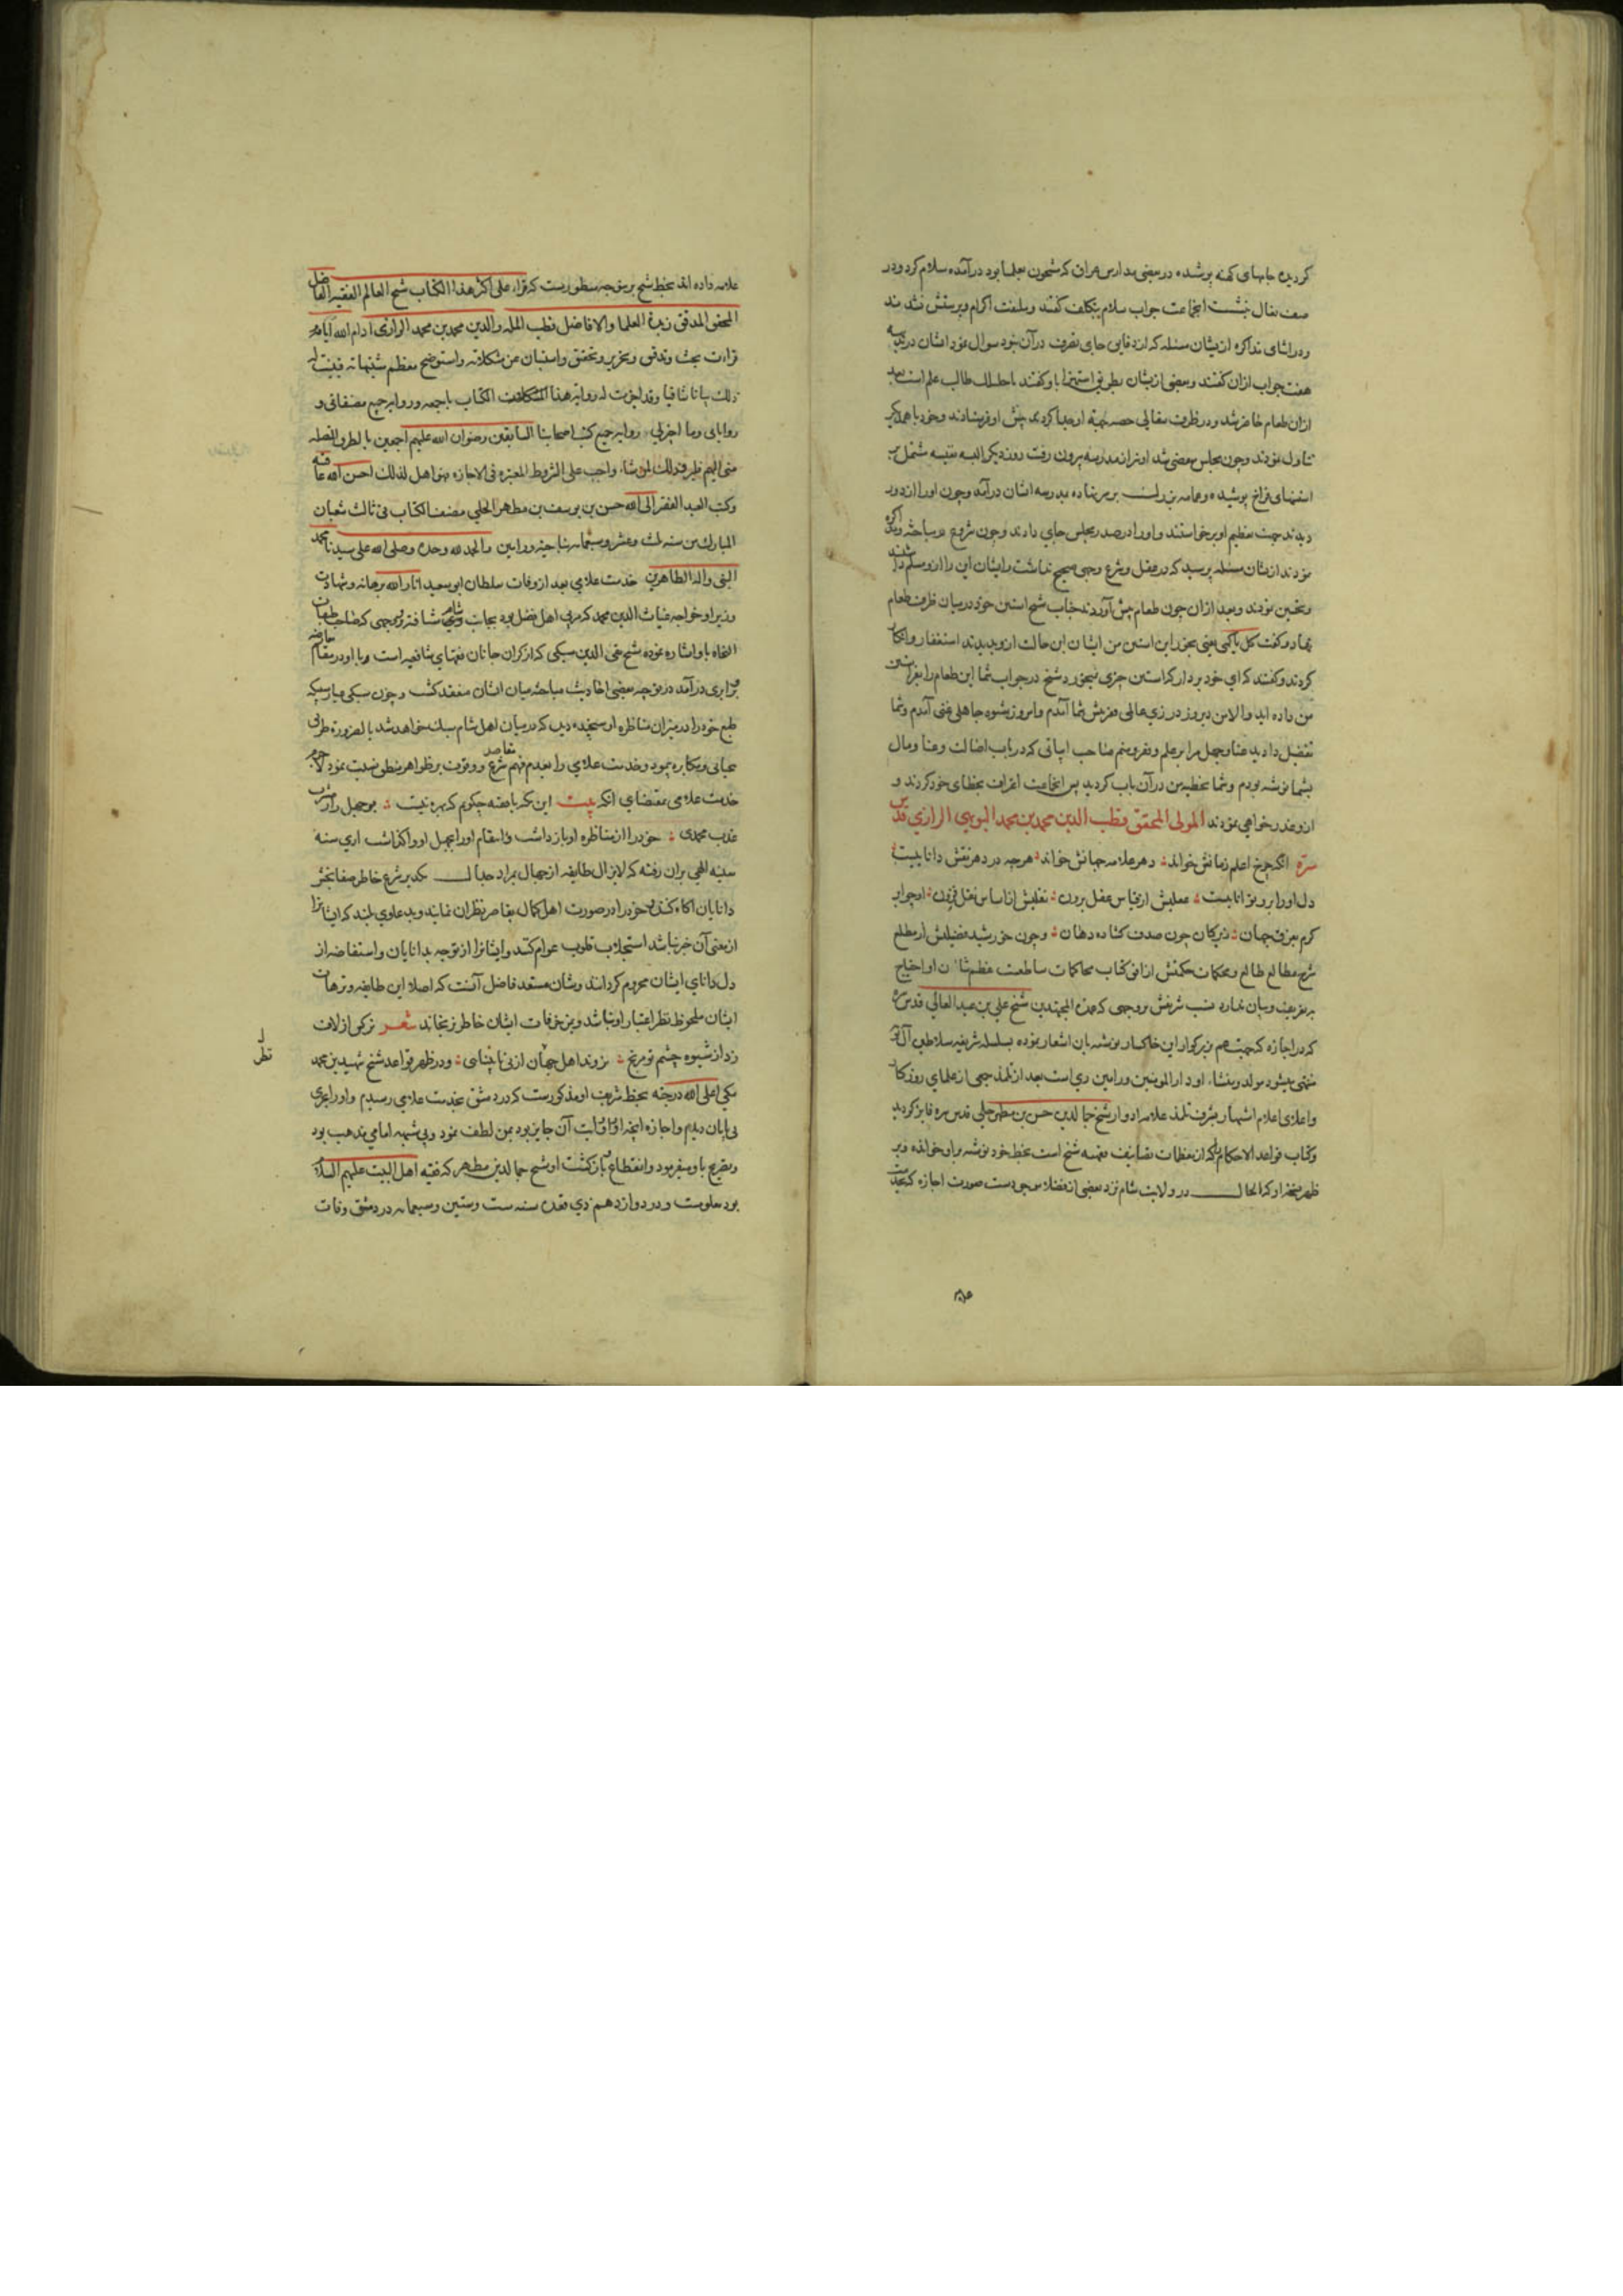 کردیده جامهای کهنه پوشیده در بعضی مدارس عراق که مشحون بعلما بود درآمده سلام کرد و در
صف نعال بنشست انجماعت جواب سلام بتکلف گفتند و ملتفت اکرام و پرسش نشدند
و در اثنای مذاکره ازیشان مسئله که از دقایق جای تفرقت در آن بود سوال نمود ایشان در
هفت جواب ازان گفتند و بعضی ازیشان بطریق استهزا باو گفتند طالب علم است بعد
ازان طعام حاضر شد و در ظرف سفالی حصه جهة او جدا کردند پیش او فرستادند و خود باهمدیگر
تناول نمودند و چون مجلس منقضی شد او نیز از مدرسه بیرون رفت روز دیگر البسه نفیسه مشتمل بر
استینهای فراخ پوشیده و عمامه بزرک بر سر نهاده بمدرسه ایشان درآمد و چون او را از دور
دیدند جهت تعظیم او برخواستند و او را در صدر مجلس جای دادند و چون شروع در مباحثه و مذاکره
نمودند ازیشان مسئله پرسید که در عقل و شرع وجهی صحیح نداشت و ایشان این را ازو مسلم داشتند
و تحسین نمودند و بعد ازان چون طعام پیش آوردند جناب شیخ استین خود در میان ظرف طعام
نهاد و گفت کل یا کمی یعنی بخور ای استین من ایشان این حالت ازو بدیدند استغفار و انکار
کردند و گفتند که ای خود بردار که استین چیزی نمیخورد شیخ در جواب شما این طعام را بمن استین
من داده اید والا من دیروز در زی عالی مزیش شما آمدم و امروز بشیوه جاهلی غنی آمدم و شما
تفضیل دادید غنا و جهل را بر علم و فقر و منم صاحب ابیاتی که در باب اصالت و غنا و مال
بشما نوشته بودم و شما تخطیه من در آن باب کردید پس انجماعت اعتراف بخطای خود کردند و
ازو عذرخواهی نمودند المولی المحقق قطب الدین محمد بن محمد البویهی الرازی قدس
سره انکه چرخ اعلم زمانش خواند دهر علامه جهانش خواند هرچه در دهر نقش داناییست
دل او را برو تواناییست عملیش از قیاس عقل برون نقلیش از اساس نقل فزون او چو ابر
کرم میزفیضان زیرکان چون صدف کشاده دهان و چون خورشید فضیلتش از مطلع
شرح مطالع طالع و محکمات حکمتش از افق کتاب محاکمات ساطعست عظم شان او احتیاج
بتعریف و بیان ندارد نسب شریفش بروجهی که عمدة المجتهدین شیخ علی بن عبد العالی قدس سره
که در اجازه که جهت هم بزرکوار این خاکسار نوشته بان اشعار نموده بسلسله شریفه سلاطین آل بویه
منتهی میشود مولد و منشاء او دار المومنین ورامین ری است بعد از تلمذ جمعی از علمای روزکار
و اعلای اعلام اشتهار بشرف تلمذ علامه ادوار شیخ جمال الدین حسن بن مطهر حلی قدس سره فایز کردید
و کتاب قواعد الاحکام که از معظمات تصانیف فقهیه شیخ است بخط خود نوشته برو خوانده و بر
ظهر نسخه او که الحال در ولایت شام نزد بعضی از فضلا موجودست صورت اجازه که
علامه داده اند بخط شیخ برین وجه مسطورست که قراء علی اکثر هذا الکتاب شیخ العالم الفقیه الفاضل
المحقق المدقق زبدة العلما والافاضل قطب المله والدین محمد بن محمد الرازی ادام الله ایامه
قراءت بحث و تدقیق و تحریر و تحقیق و استبان عن مشکلاته و استوضح معظم شبهاته فبینت له
ذلک بیانا شافیا و قد اجزت له روایة هذا الکتاب باجمعه و روایة جمیع مصنفاتی و
روایاتی وما اجزلی روایة جمیع کتب اصحابنا السابقین رضوان الله علیهم اجمعین بالطرق المتصله
منی الیهم فلیرو ذلک لمن شاء واحب علی الشروط المعتبره فی الاجازه فهو اهل لذلک احسن الله عاقبته
وکتب العبد الفقیر الی الله حسن بن یوسف بن مطهر الحلی مصنف الکتاب فی ثالث شعبان
المبارک من سنه ثلث وعشر وسبعمایه بناحیة ورامین والحمد لله وحده وصلی الله علی سیدنا محمد
النبی واله الطاهرین خدمت علامی بعد از وفات سلطان ابو سعید انار الله برهانه و شهادت
وزیر او خواجه غیاث الدین محمد که مربی اهل فضل بود بجانب شام شتافته و بوجهی که صاحب طبقات
النحاة باو اشاره نموده شیخ تقی الدین سبکی که از کران جانان فقهای شافعیه است و با او در مقام معارضه
برابری درآمد در توجیه بعضی احادیث مباحثه میان ایشان منعقد کشت و چون سبکی عیار سبکه
طبع خود را در میزان مناظره او سنجیده دید که در میان اهل شام سبک خواهد شد بالضروره طریق
بیحیایی و مکابره پیمود و خدمت علامی را بعدم فهم مقاصد شرع و وقوف بر ظواهر منطق نسبت نمود لاجرم
خدمت علامی بمقتضای انکه بیت این که با فضه چکویم که بهره نیست بوجهل را ز مشرب
عذب محمدی خود را از مناظره او باز داشت و انتقام او را بجهل او واکذاشت اری سنه
سنیه الهی بران رفته که لایزال طایفه از جهال بمراد جدال مکدر شرع خاطر صفا بخش
دانایان اکاه کشته خود را در صورت اهل کمال بقاصر نظران نمایند و بدعاوی بلند که ایشانرا
از معنی آن خبر نباشد استجلاب قلوب عوام کنند و ایشانرا از توجه بدانایان و استفاضه از
دل دانای ایشان محروم کردانند و شان مستعد فاضل آنست که اصلا این طایفه و ترهات
ایشان ملحوظ نظر اعتبار او نباشد و بمزخرفات ایشان خاطر نرنجاند شعر نرکس از لاف
زد از شیوه چشم تو مرنج نروند اهل جهان از پی نابینایی و در ظهر قواعد شیخ شهید بن محمد
مکی اعلی الله درجته بخط شریف او مذکورست که در دمشق بخدمت علامی رسیدم و او را بحری
بی پایان دیدم و اجازه آنچه روایت آن جایز بود بمن لطف نمود و بی شبهه امامی مذهب بود
و تصریح باو میفرمود و انقطاع و بازکشت او شیخ جمال الدین مطهر که فقیه اهل البیت علیهم السلام
بود معلومست و در دوازدهم ذی قعده سنه ست و ستین و سبعمایه در دمشق وفات